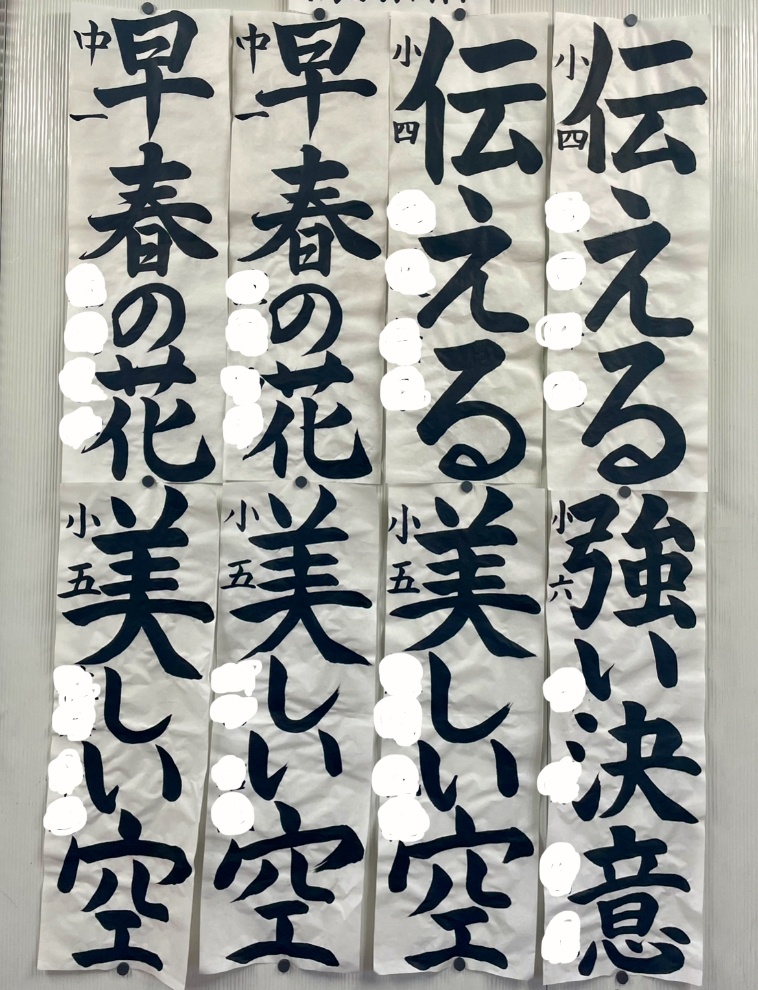 伝える
小四
伝える
小四
早春の花
中一
早春の花
中一
強い決意
小六
美しい空
小五
美しい空
小五
美しい空
小五